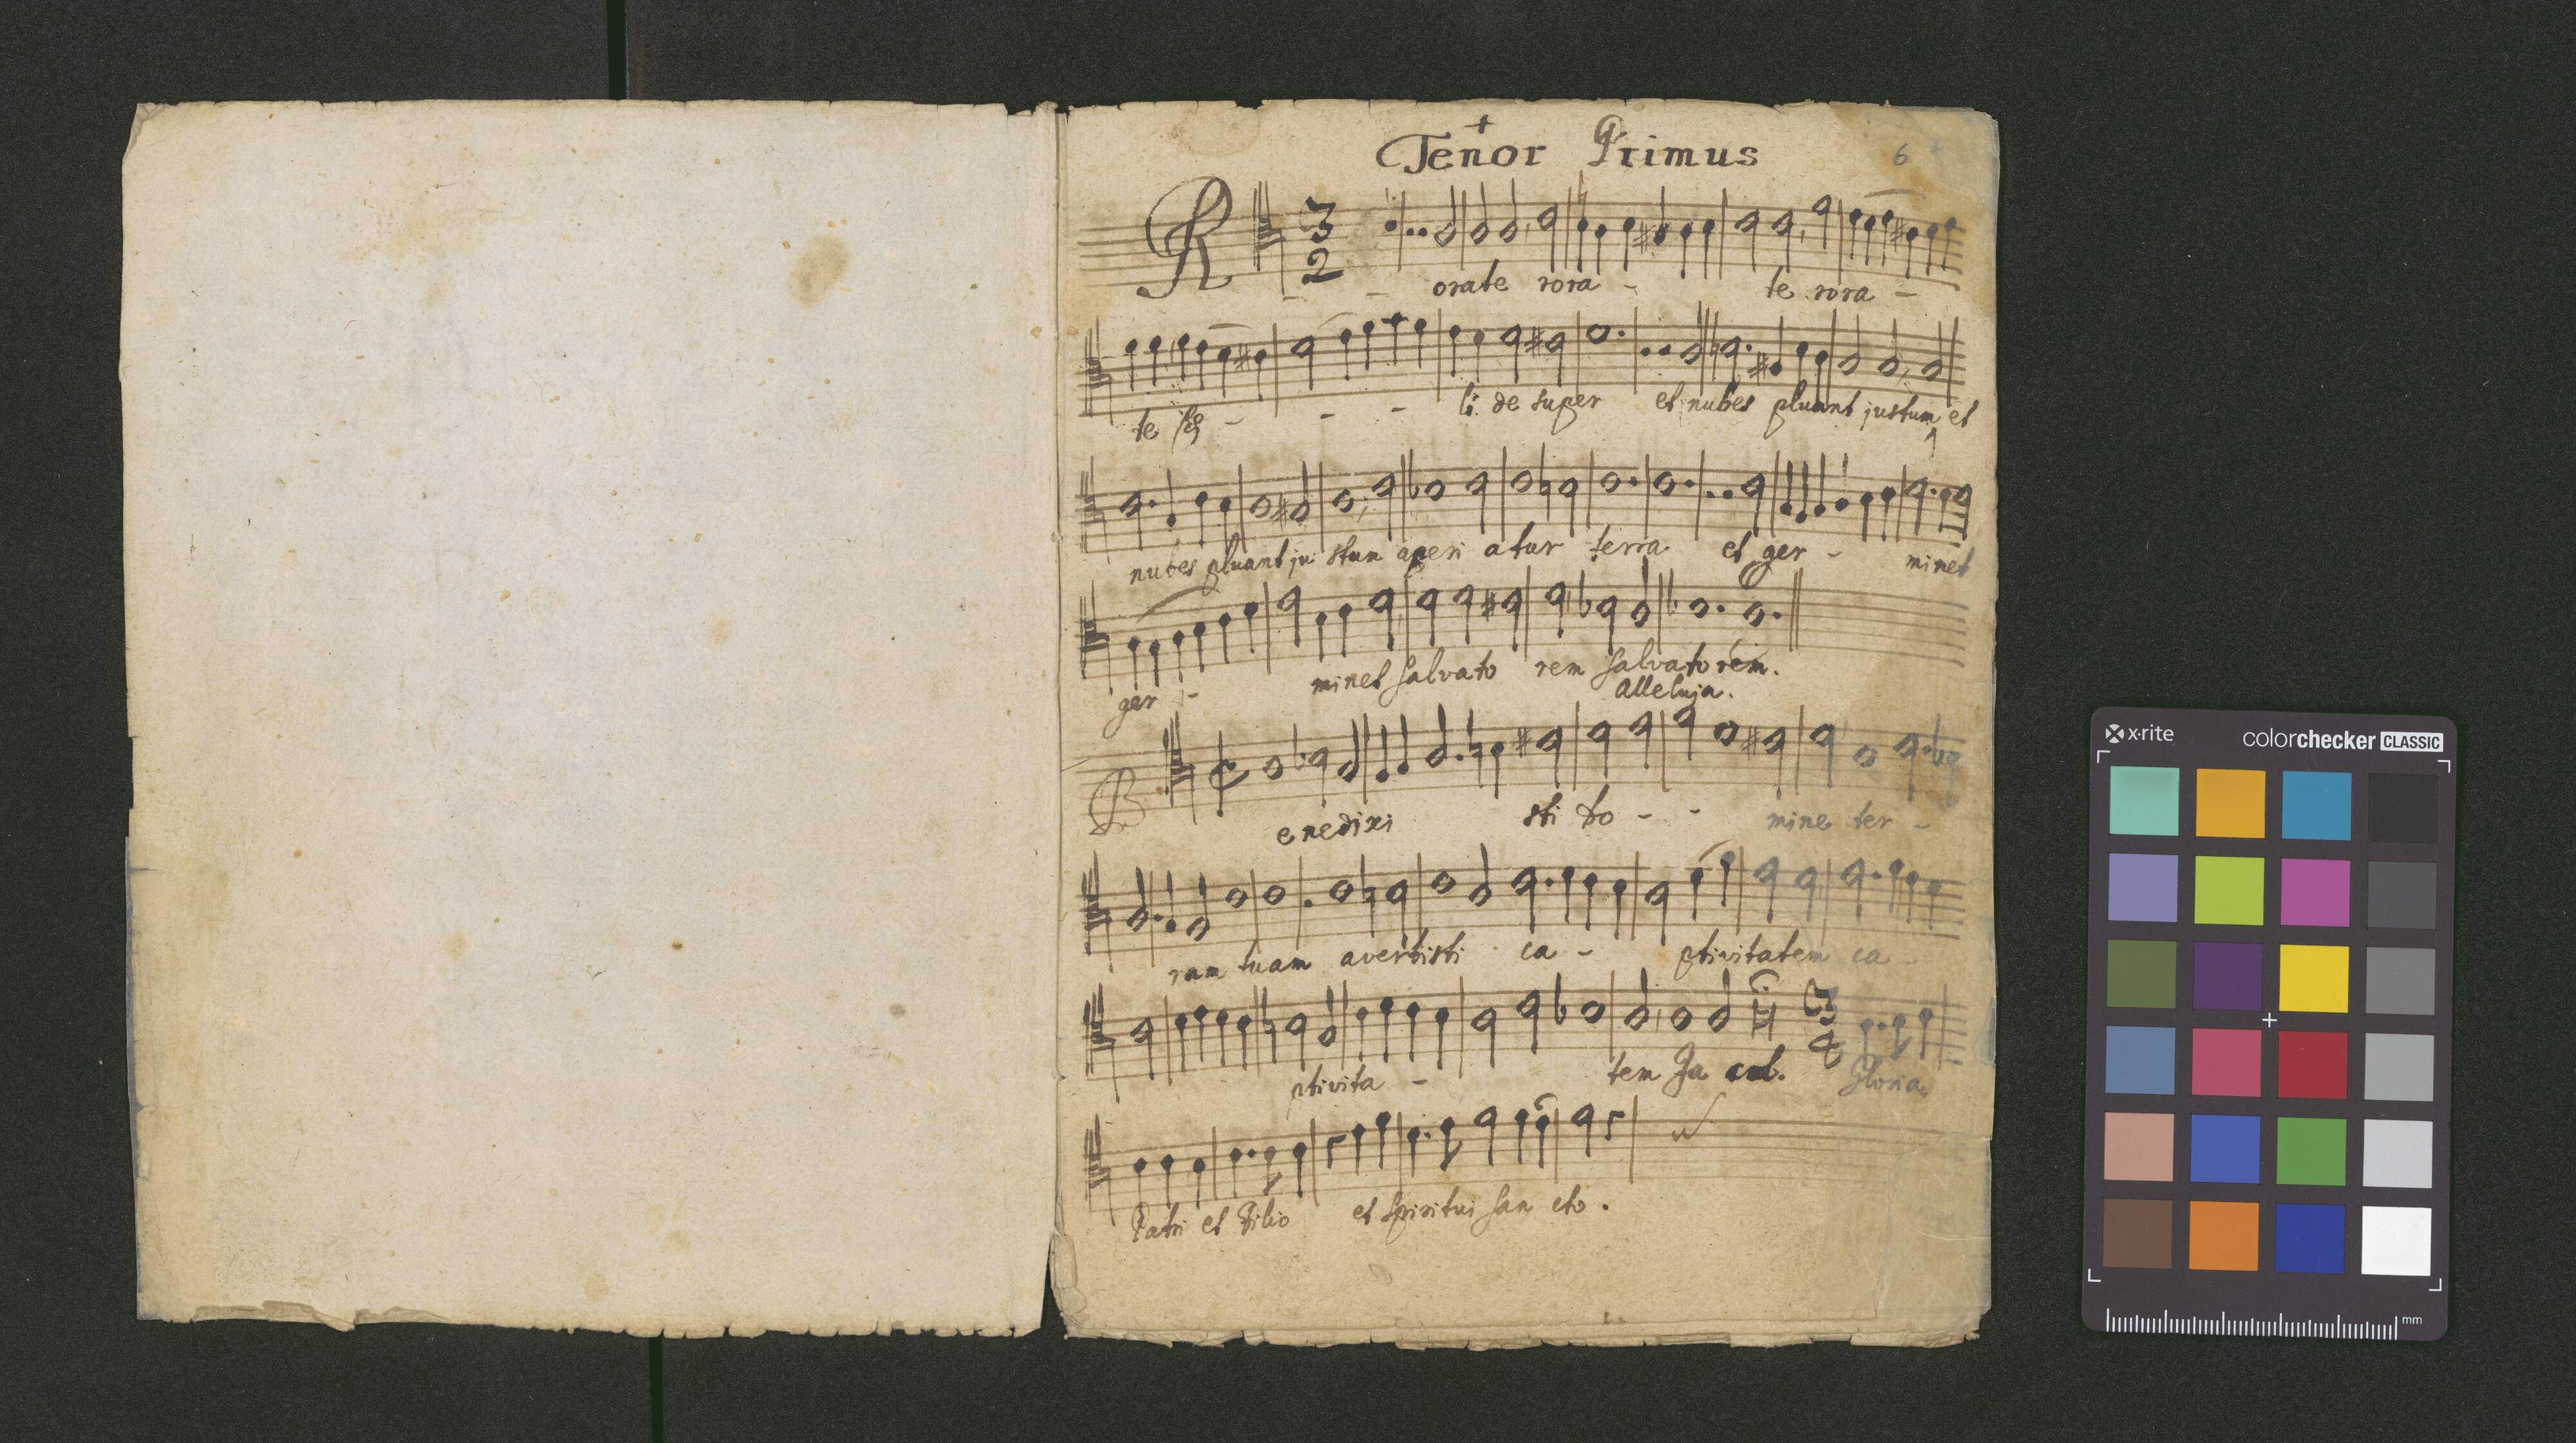 Tenor Primus
6
3
2
R orate rora - te rora -
te cæ - - - li de super et nubes pluant justum et
nubes pluant ju stum aperi atur terra et ger - minet
ger - minet salvato rem salvatorem.
Alleluja.
B enedixi sti Do - - mine ter -
ram tuam avertisti ca - ptivitatem ca -
ptivita - tem Ja cob. Gloria
3
4
Patri et Filio et Spiritui San cto.
x-rite
colorchecker CLASSIC
mm